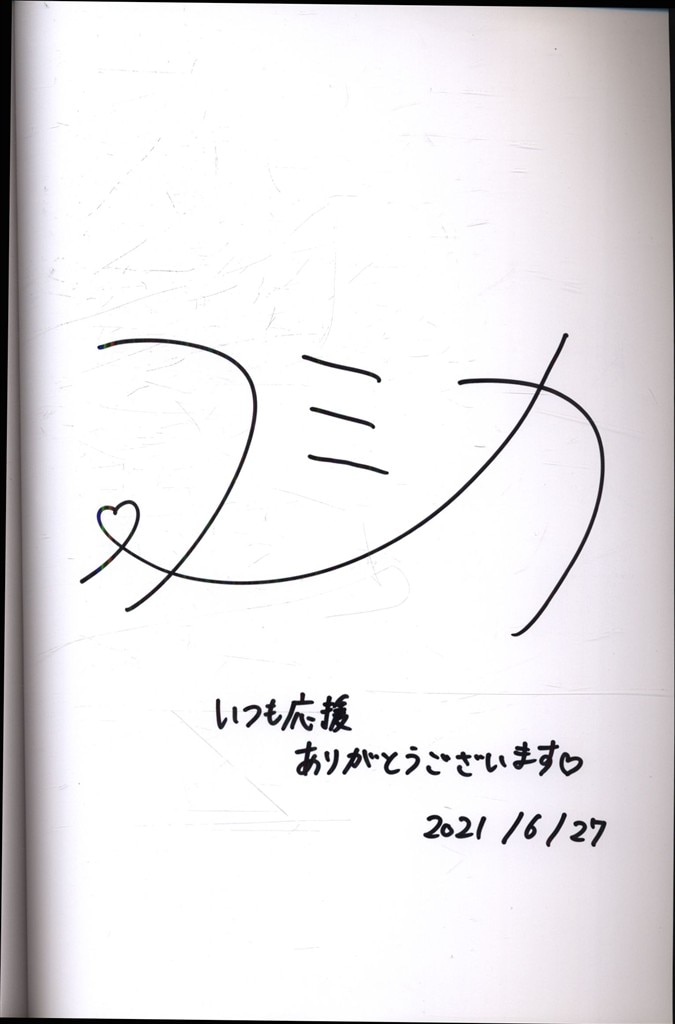 フミカ
いつも応援
ありがとうございます♡
2021/6/27